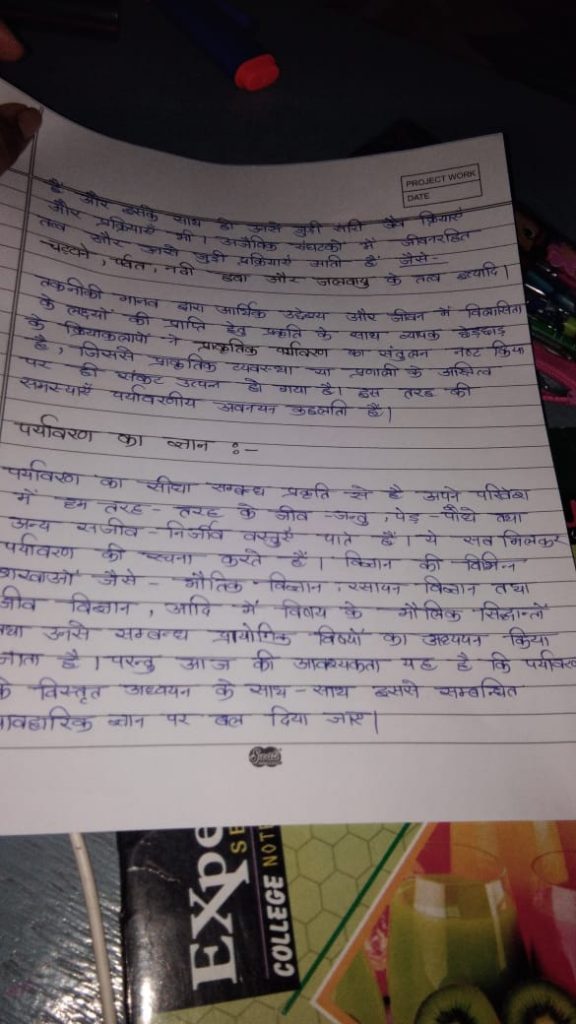 PROJECT WORK
DATE
है और इसके साथ ही उससे जुड़ी सारी जैव क्रियाएं
और प्रक्रियाएं भी। अजैविक संघटकों में जीवनरहित
तत्व और उनसे जुड़ी प्रक्रियाएं आती हैं जैसे -
चट्टाने, पर्वत, नदी हवा और जलवायु के तत्व इत्यादि।
तकनीकी मानव द्वारा आर्थिक उद्देश्य और जीवन में विलासिता
के लक्ष्यों की प्राप्ति हेतु प्रकृति के साथ व्यापक छेड़छाड़
के क्रियाकलापों ने प्राकृतिक पर्यावरण का संतुलन नष्ट किया
है, जिससे प्राकृतिक व्यवस्था या प्रणाली के अस्तित्व
पर ही संकट उत्पन हो गया है। इस तरह की
समस्याएँ पर्यावरणीय अवनयन कहलाती हैं।
पर्यावरण का ज्ञान :-
पर्यावरण का सीधा सम्बन्ध प्रकृति से है अपने परिवेश
में हम तरह - तरह के जीव - जन्तु, पेड़ - पौधे तथा
अन्य सजीव - निर्जीव वस्तुएँ पाते हैं। ये सब मिलकर
पर्यावरण की रचना करते हैं। विज्ञान की विभिन्न
शाखाओं जैसे - भौतिक विज्ञान, रसायन विज्ञान तथा
जीव विज्ञान, आदि में विषय के मौलिक सिद्धान्तों
तथा उनसे सम्बन्ध प्रायोगिक विषयों का अध्ययन किया
जाता है। परन्तु आज की आवश्यकता यह है कि पर्यावरण
के विस्तृत अध्ययन के साथ - साथ इससे सम्बन्धित
व्यावहारिक ज्ञान पर बल दिया जाए।
EXpe
SE
COLLEGE NOTE